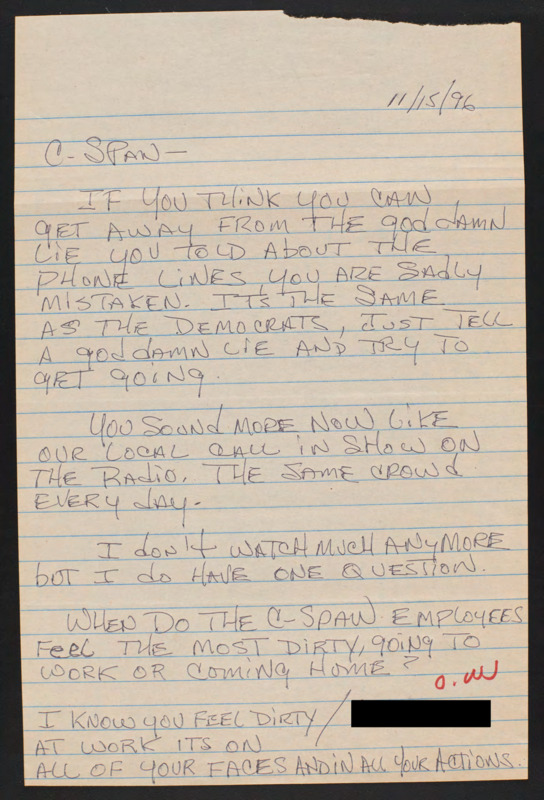 11/15/96
C-SPAN—
IF YOU THINK YOU CAN
GET AWAY FROM THE goddamn
LIE YOU TOLD ABOUT THE
PHONE LINES, YOU ARE SADLY
MISTAKEN. ITS THE SAME
AS THE DEMOCRATS, JUST TELL
A goddamn LIE AND TRY TO
GET GOING.
YOU SOUND MORE NOW LIKE
OUR LOCAL CALL IN SHOW ON
THE RADIO. THE SAME CROWD
EVERY DAY.
I don't WATCH MUCH ANYMORE
bUT I do HAVE ONE QUESTION.
WHEN DO THE C-SPAN EMPLOYEES
FEEL THE MOST DIRTY, GOING TO
WORK OR COMING HOME?
I KNOW YOU FEEL DIRTY /
AT WORK ITS ON
ALL OF YOUR FACES AND IN ALL YOUR ACTIONS.